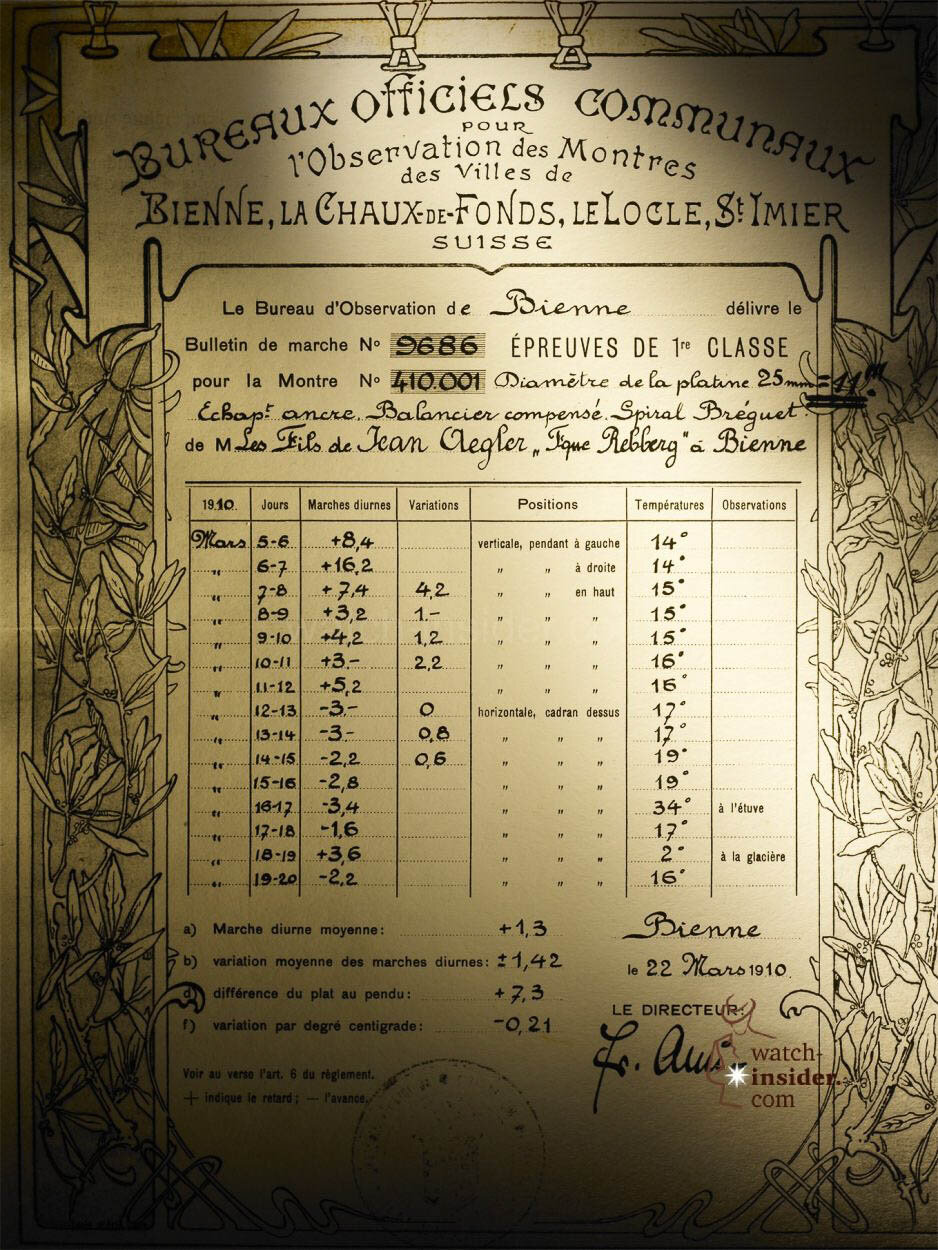 BUREAUX OFFICIELS COMMUNAUX
POUR
l'Observation des Montres
des Villes de
BIENNE, LA CHAUX-DE-FONDS, LE LOCLE, St IMIER
SUISSE
Le Bureau d'Observation de Bienne délivre le
Bulletin de marche No 9686 ÉPREUVES DE 1re CLASSE
pour la Montre No 410.001 Diamètre de la platine 25 mm = 11'''
Échapt ancre. Balancier compensé. Spiral Bréguet.
de M Les Fils de Jean Aegler, „Fque Rebberg" à Bienne
1910. Jours Marches diurnes Variations Positions Températures Observations
Mars 5-6 +8,4 verticale, pendant à gauche 14°
" 6-7 +16,2 " " à droite 14°
" 7-8 +7,4 4,2 " " en haut 15°
" 8-9 +3,2 1.- " " " 15°
" 9-10 +4,2 1,2 " " " 15°
" 10-11 +3.- 2,2 " " " 16°
" 11-12 +5,2 " " " 16°
" 12-13 -3.- 0 horizontale, cadran dessus 17°
" 13-14 -3.- 0,8 " " " 17°
" 14-15 -2,2 0,6 " " " 19°
" 15-16 -2,8 " " " 19°
" 16-17 -3,4 " " " 34° à l'étuve
" 17-18 -1,6 " " " 17°
" 18-19 +3,6 " " " 2° à la glacière
" 19-20 -2,2 " " " 16°
a) Marche diurne moyenne: +1,3
b) variation moyenne des marches diurnes: ±1,42
d) différence du plat au pendu: +7,3
f) variation par degré centigrade: -0,21
Voir au verso l'art. 6 du règlement.
+ indique le retard; — l'avance.
Bienne
le 22 Mars 1910.
LE DIRECTEUR:
watch-
insider.
com